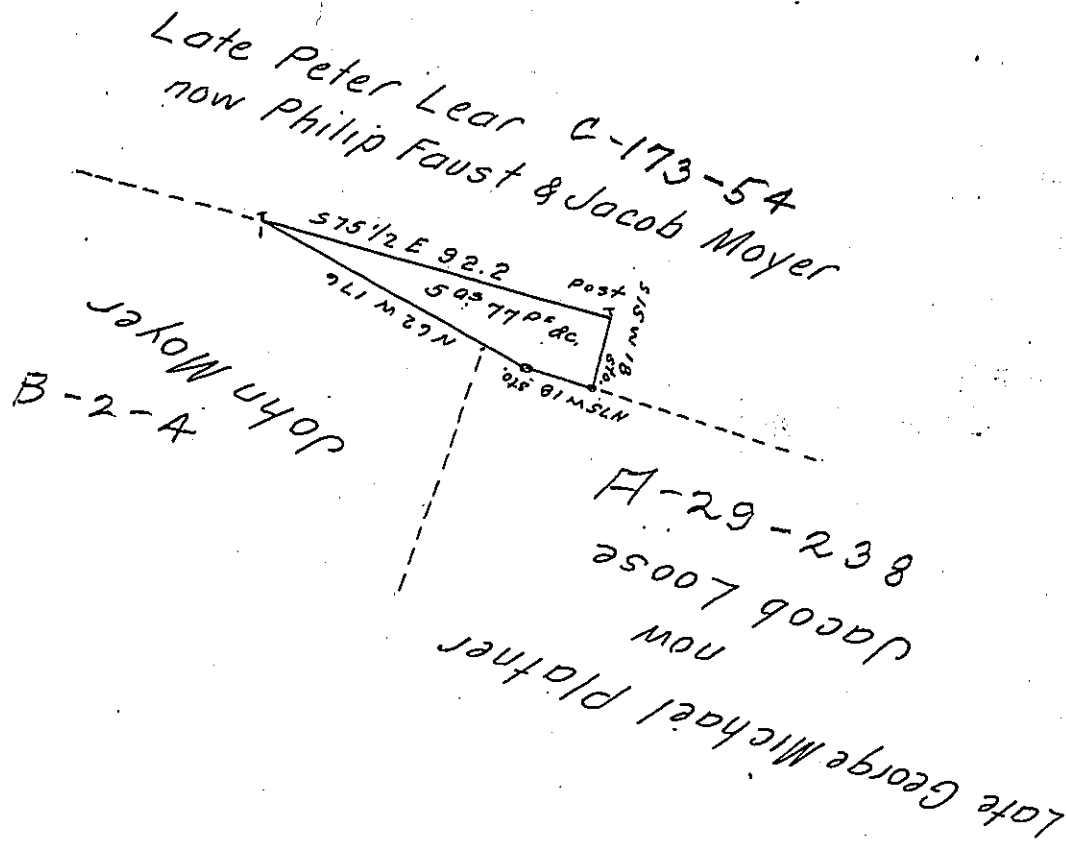 Late Peter Lear C-173-54
now Philip Faust & Jacob Moyer
S75 1/2 E 92.2
5 as 77 ps &c.
post
S15W18
sto.
N62 W 176
sto.
N75W18
John Moyer
B-2-A
A-29-238
Late George Michael Platner
now
Jacob Loose